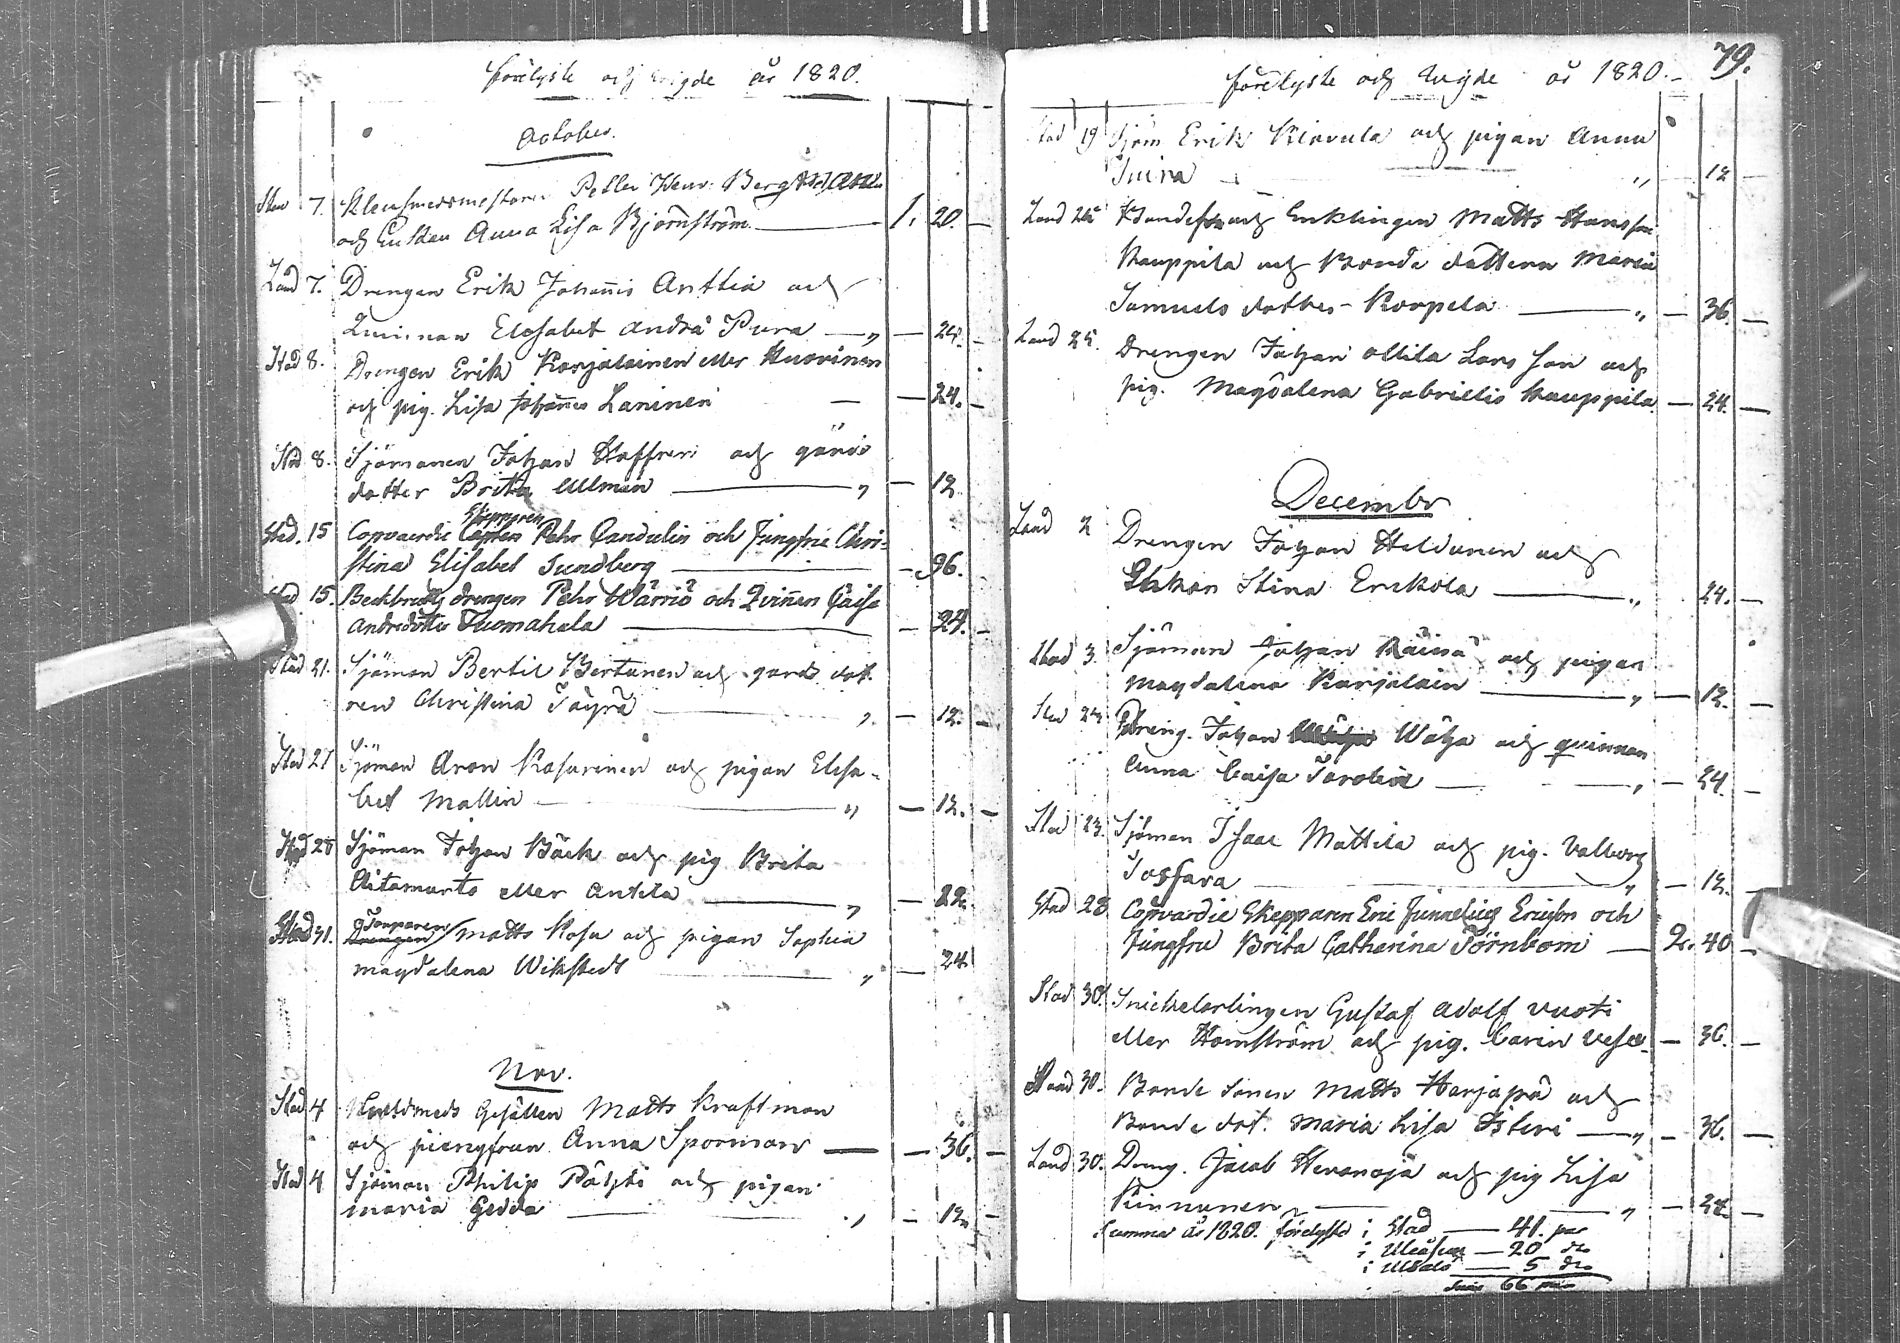 förelyste och wigde år 1820.
October.
Stad 7. Petter Henr: Bergman
och Enkan Anna Lisa Björnström 1. 20.
Land 7. Drengen Erik Johannis Anttia och
Quinnan Elisabet Andrä Pura " 24.
Stad 8. Drengen Erik Karjalainen eller Huovinen
och pig. Lisa Johannes Laninen 24.
Stad 8. Sjömanen Johan Haffren och gårds
dotter Brita Ullman " 12
Skepparen
Stad. 15 Copvaerdie Pehr Candelin och Jungfru Chri-
stina Elisabet Sundberg 96.
Stad 15. Beckbruks drengen Pehr Wärriö och Qvinnen Caisa
Andredotter Tuomahela 24.
Stad 21. Sjöman Bertil Bertunen och gårds dot
ren Christina Täyrä " 12.
Stad 21 Sjöman Aron Kosunen och pigan Elisa-
bet Mallin " 12.
Stad 28 Sjöman Johan Bäck och pig Brita
Aitamurto eller Anttila "
Torparen
Stad 31. Drengen Matts Kosu och pigan Sophia
Magdalena Wikstedt " 24
Nov.
Stad 4 Gesällen Matts Kraftman
och Anna Sporman 36.
Stad 4 Sjöman Philip Pätysi och pigan
Maria Gedda " 12.
förelyste och wigde år 1820. 79.
Stad 19 Sjöm Erik Kiovula och pigan Anna
" 12
Land 25 och Enklingen Matts Hansson
Kauppila och Bonde dottern Maria
Samuels dotter Korpela " 36.
Land 25. Drengen Johan Ollila Lars son och
pig. Magdalena Gabriellis Kauppila 24.
December
Land 2 Drengen Johan Heldunen och
Enkan Stina Erkkola " 24.
Stad 3. Sjöman Johan Räisä och pigan
Magdalena Karjalain " 12.
Stad Dreng. Johan Wäha och quinnan
Anna Caisa " 24.
Stad 23. Sjöman Isaac Mattila och pig. Valborg
" 12.
Stad 28 Copvardie Skepparen Eric Junnelius Ericson och
Jungfru Brita Catharina Törnbom 2. 40
Stad 30. Snickelerlingen Gustaf Adolf Vuoti
eller Homström och pig. Carin 36.
Land 30. Bonde sonen Matts Harjapä och
Bonde dot. Maria Lisa Isteri " 36.
Land 30. Dreng. Jacob Hevonoja och pig Lisa
Kinnunen " 24.
Summa år 1820. förelyste i Stad 41. par
i Uleåsun 20 do
i Uleålo 5 do
Sum 66 par